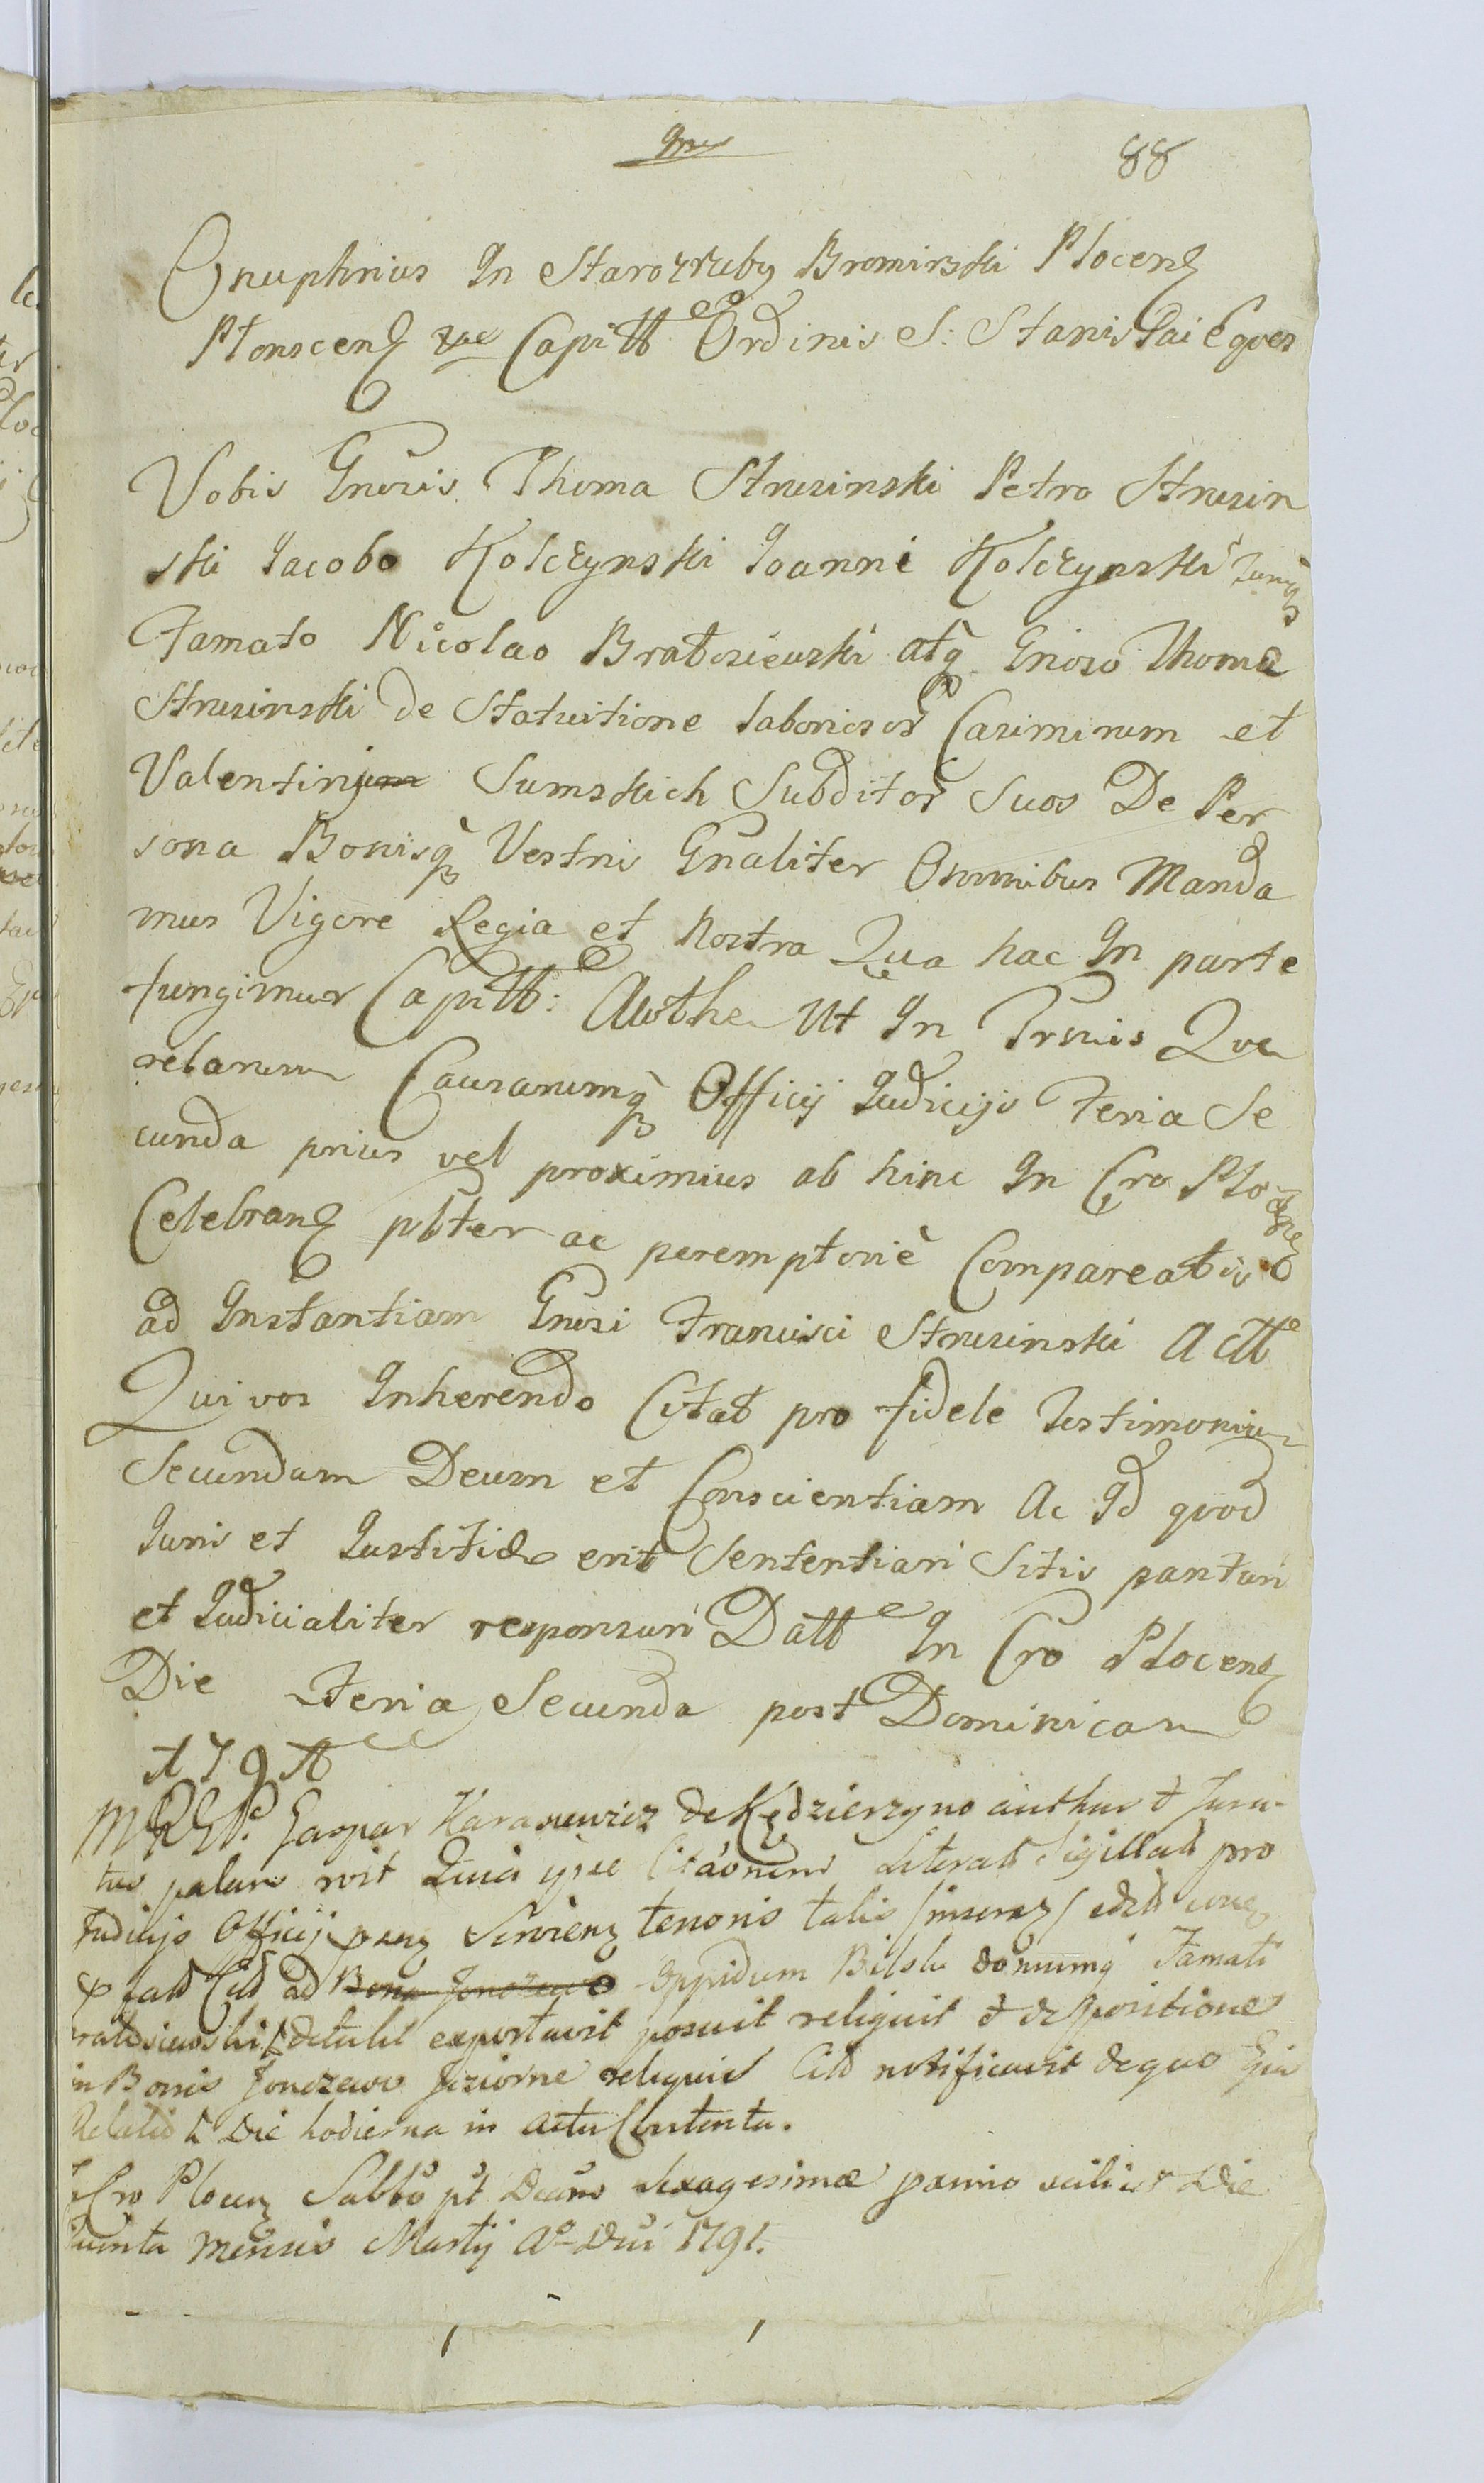 88
Onuphrius In Starozreby Bromirski Plocen
Plonscen Capitt Ordinis S: Stanislai Eques
Vobis Gnosis Thoma Strusinski Petro Strusin
ski Iacobo Kolczynski Ioanni Kolczynski
Famato Nicolao Bratosiewski atq Gnoso Thoma
Strusinski de Statuitione laboriosor Casimirum et
Valentin Sumskich Subditor Suos De Per
sona Bonisq Vestris Gnaliter Omnibus Manda
mus Vigore Regia et Nostra Qua hac In parte
fungimur Capitt: Authe Ut In Trmis Que
relarum Causarumq Officij Iudicijs Feria Se
cunda prius vel proximius ab hinc In Cro Plo
Celebran pltter ac peremptoriè Compareatis
ad Instantiam Gnosi Francisci Strusinski Actt
Qui vos Inherendo Citat pro fidele Testimonium
Secundum Deum et Conscientiam Ac Id quod
Iuris et Iustitiæ erit Sententiari Sitis parituri
et Iudicialiter responsuri Datt In Cro Plocen
Die Feria Secunda post Dominicam
Gaspar Karasiewicz de Kędzierzyno authus Jura-
tus palam Quia ipse Citaonem Literat Sigillat pro
Judicijs Officij Servien tenoris talis
Citt ad Bona oppidum Bilsk domumq Famati
ratosiewski detulit exportavit posuit reliquit de positione
in Bonis Jonczewo Jeziorne reliquit Citt notificavit de quo
Relatio Die hodierna in actu Contenta.
Cro Plocen Sabbo pt Dnam Sexagesimæ proximo scilicet Die
quinta Mensis Martij Ao Dni 1791.